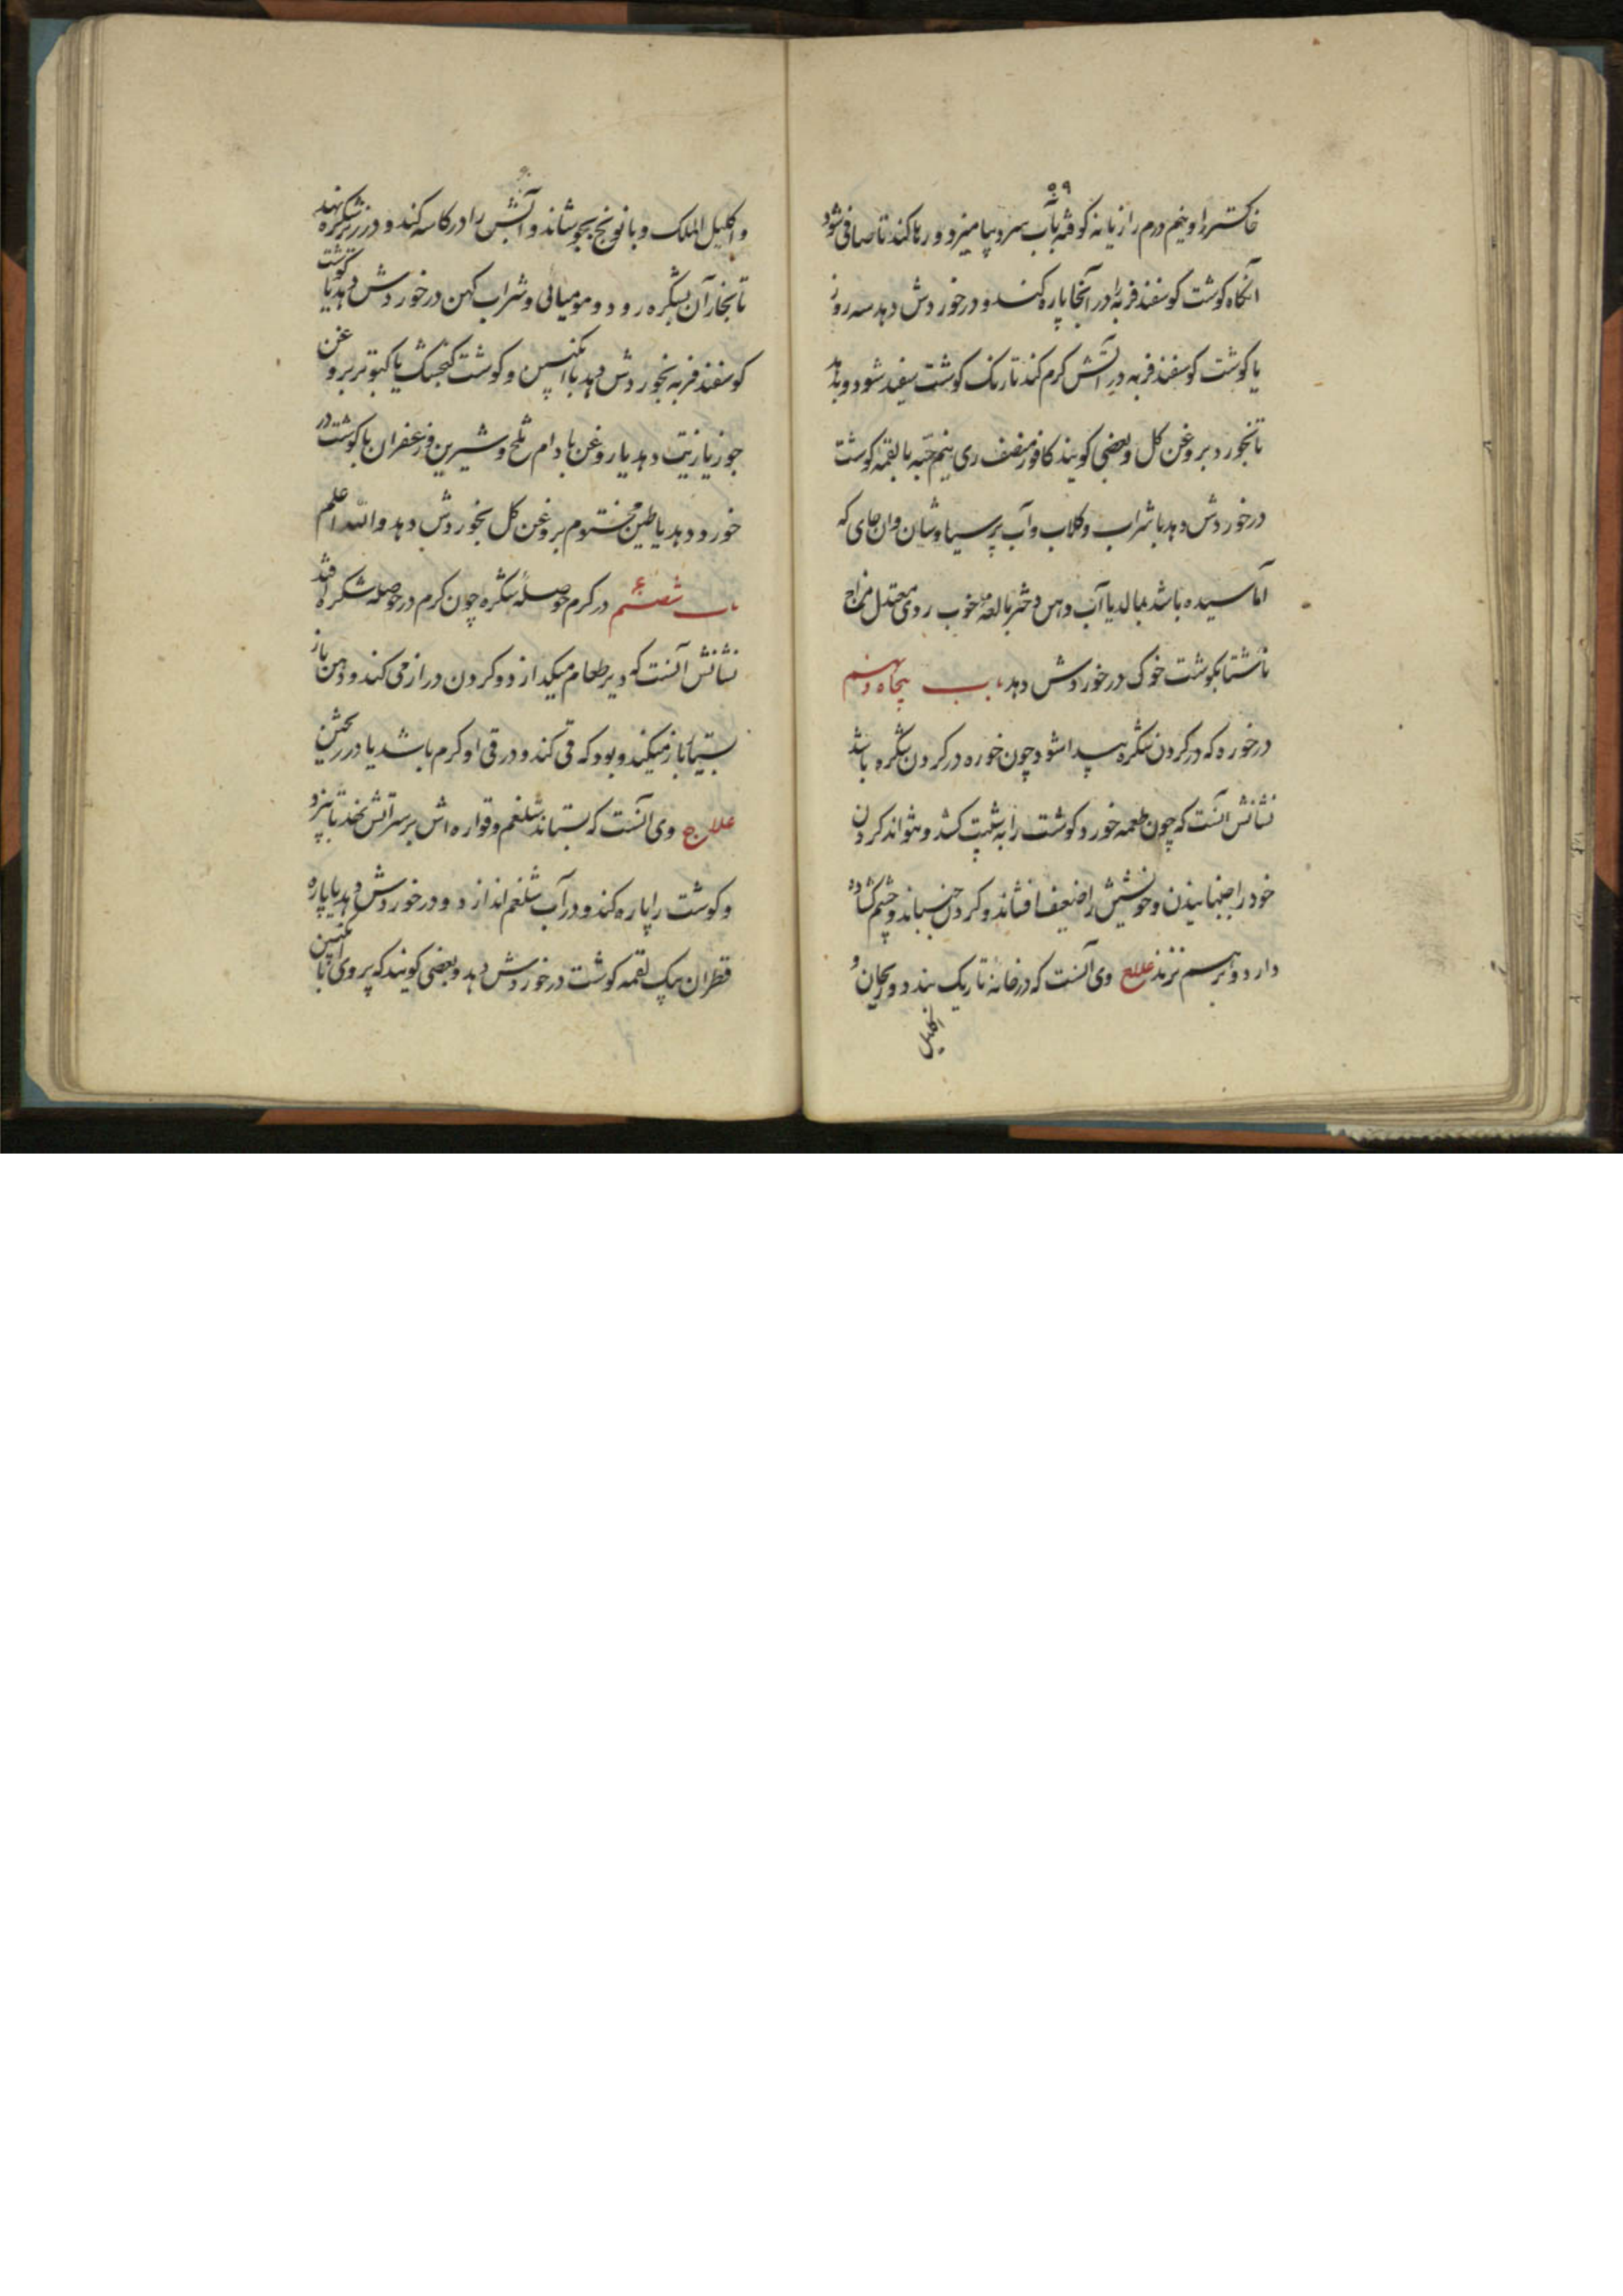 ۵۹
خاکستر را و نیم درم رازیانه کوفته بآب سرد بیامیزد و رها کند تا صافی شود
آنگاه کوشت کوسفند فربه را در آنجا پاره کند و در خوردش دهد سه روز
یا کوشت کوسفند فربه در آتش کرم کند تا رنک کوشت سفید شود و
تا بخورد بروغن کل و بعضی کویند کافور نیم حبه با لقمه کوشت
در خوردش دهد با شراب و کلاب و آب پرسیاوشان و ان جای که
آماسیده باشد بمالد با آب دهن دختر بالغه خوب روی معتدل مزاج
ناشتا بکوشت خوک در خوردش دهد باب پنجاه و نهم
در خوره که در کردن شکره پیدا شود چون خوره در کردن شکره باشد
نشانش آنست که چون طعمه خورد کوشت را به کشد و نتواند کردن
خود را جنبانیدن و خویشتن را ضعیف افشاند و کردن جنباند و چشم کشاده
دارد و برهم نزند علاج وی آنست که در خانهٔ تاریک بندد و ریحان و
اکلیل
و اکلیل الملک و بابونج بجوشاند و آبش را در کاسه کند و در زیر شکره نهد
تا بخار آن بشکره رود و مومیائی و شراب کهن در خوردش دهد یا کوشت
کوسفند فربه بخوردش دهد با انکبین و کوشت کنجشک یا کبوتر بروغن
جوز یا زیت دهد یا روغن بادام تلخ و شیرین و زعفران با کوشت در
خورد دهد یا طین مختوم بروغن کل بخوردش دهد و الله اعلم
باب شصتم در کرم حوصلهٔ شکره چون کرم در حوصله شکره افتد
نشانش آنست که دیر طعام میکدازد و کردن دراز می کند و دهن باز
باز میکند و بود که قی کند و در قی او کرم باشد یا در
علاج وی آنست که بستاند شلغم و قواره اش بر سر آتش نهد تا بپزد
و کوشت را پاره کند و در آب شلغم اندازد و در خوردش دهد یا پاره
قطران بیک لقمه کوشت در خوردش دهد و بعضی کویند که پر وی با انکبین